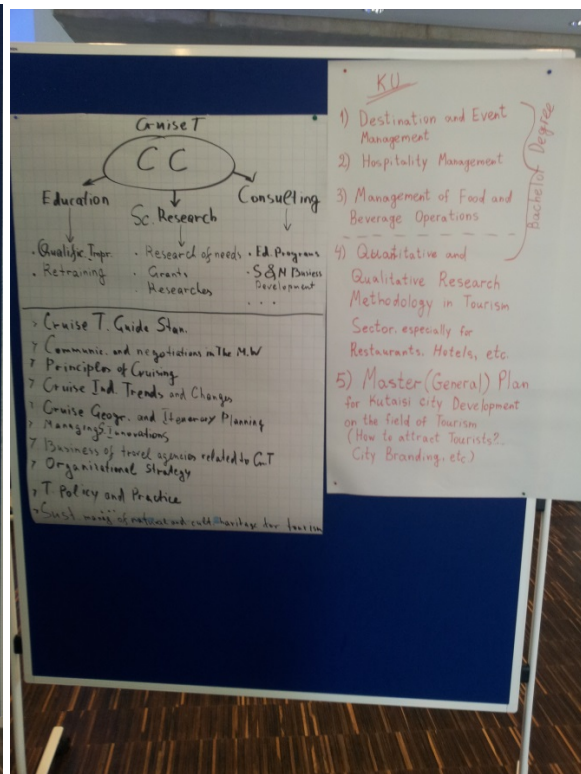 Cruise T
C C
Education
Sc. Research
Consulting
· Qualific. Impr.
· Retraining
· Research of needs
· Grants
· Researches
· Ed. Programs
· S&M Business
Development
...
> Cruise T. Guide Stan.
> Communic. and negotiations in The M.W
> Principles of Cruising
> Cruise Ind. Trends and Changes
> Cruise Geogr. and Itenerary Planning
> Managing Innovations
> Business of travel agencies related to
> Organizational Strategy
> T. Policy and Practice
> Sust. of natural and cult. heritage for tourism
KU
1) Destination and Event
Management
2) Hospitality Management
3) Management of Food and
Beverage Operations
Bachelor Degree
4) Quatitative and
Qualitative Research
Methodology in Tourism
Sector. especially for
Restaurants. Hotels, etc.
5) Master (General) Plan
for Kutaisi city Development
on the field of Tourism
(How to attract Tourists?..
City Branding, etc)